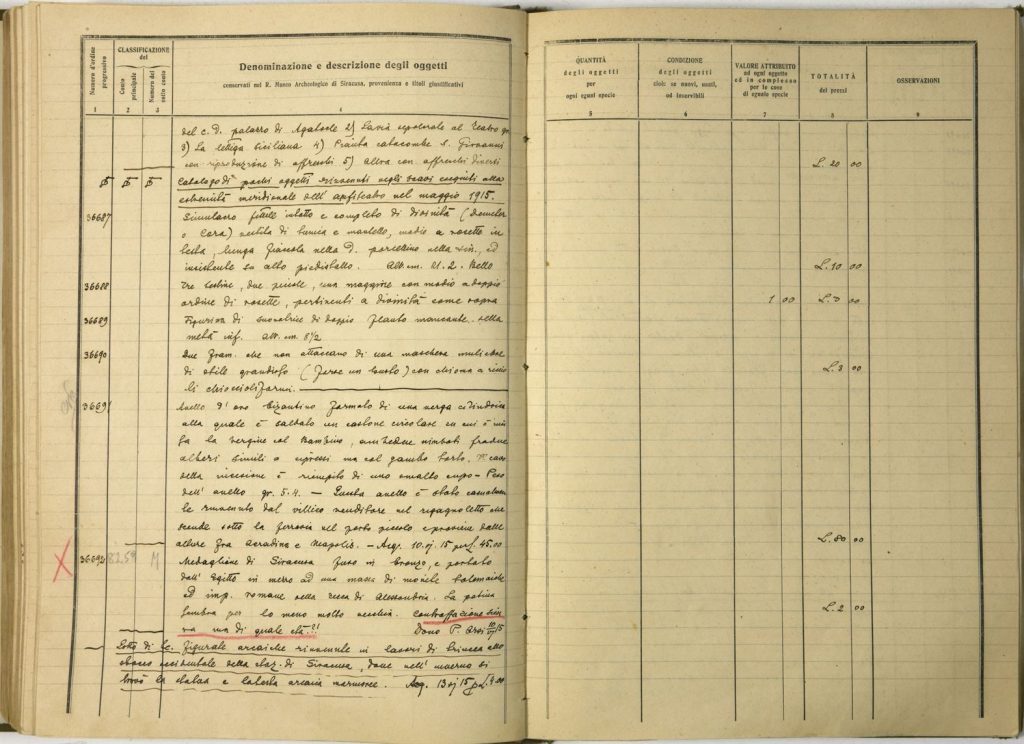 Numero d'ordine progressivo
CLASSIFICAZIONE del
Conto principale
Numero del sotto conto
Denominazione e descrizione degli oggetti
conservati nel R. Museo Archeologico di Siracusa, provenienza e titoli giustificativi
1 2 3 4
del c. D. palazzo di Agatocle 2) Lavia sepolcrale al Teatro gr.
3) La lettiga siciliana 4) Pianta catacombe S. Giovanni
con riproduzione di affreschi 5) altra con affreschi diversi
Catalogo di pochi oggetti rinvenuti negli scavi eseguiti alla
estremità meridionale dell' anfiteatro nel maggio 1915.
36687 Simulacro fittile intatto e completo di divinità (Demeter
o Cora) vestita di tunica e mantello, modio a rosette in
testa, lunga fiaccola nella D. porcellino nella sin., ed
insistente su alto piedistallo. Alt. cm. 21.2. Bello
36688 Tre testine, due piccole, una maggiore con modio a doppio
ordine di rosette, pertinenti a divinità come sopra
36689 Figurina di suonatrice di doppio flauto mancante della
metà inf. alt. cm. 8 1/2
36690 Due fram. che non attaccano di una maschera muliebre
di stile grandioso (forse un busto) con chioma a ricio
li chioccioliformi.
36691 Anello d'oro bizantino formato di una verga cilindrica
alla quale è saldato un castone circolare su cui è inci
sa la Vergine col Bambino, ambedue nimbati fra due
alberi simili a cipressi ma col gambo torto. Il cavo
della incisione è riempito di uno smalto cupo - Peso
dell' anello gr. 5.4. - Questo anello è stato casualmen
te rinvenuto dal villico venditore nel rigagnoletto che
scende sotto la ferrovia nel porto piccolo e proviene dalle
alture fra Acradina e Neapolis. - Acq. 10. VI. 15 per L. 45.00
36692 8259 M Medaglione di Siracusa fuso in bronzo, e portato
dall' Egitto in mezzo ad una massa di monete tolemaiche
ed imp. romane nella zecca di Alessandria. La patina
sembra per lo meno molto vecchia. Contraffazione sicu
ra ma di quale età?! Dono P. Orsi 10/VI 15
Lotto di tc. figurate arcaiche rinvenute in lavori di trincea allo
sbocco occidentale della staz. di Siracusa, dove nell' inverno si
trovò la statua e la testa arcaica marmoree. Acq. 13 VI 15 p. L. 4.00
QUANTITÀ degli oggetti per ogni egual specie
CONDIZIONE degli oggetti cioè: se nuovi, usati, od inservibili
VALORE ATTRIBUITO ad ogni oggetto od in complesso per le cose di eguale specie
TOTALITÀ dei prezzi
OSSERVAZIONI
5 6 7 8 9
L. 20 00
L. 10 00
1 00 L. 3 00
L. 3 00
L. 80 00
L. 2 00